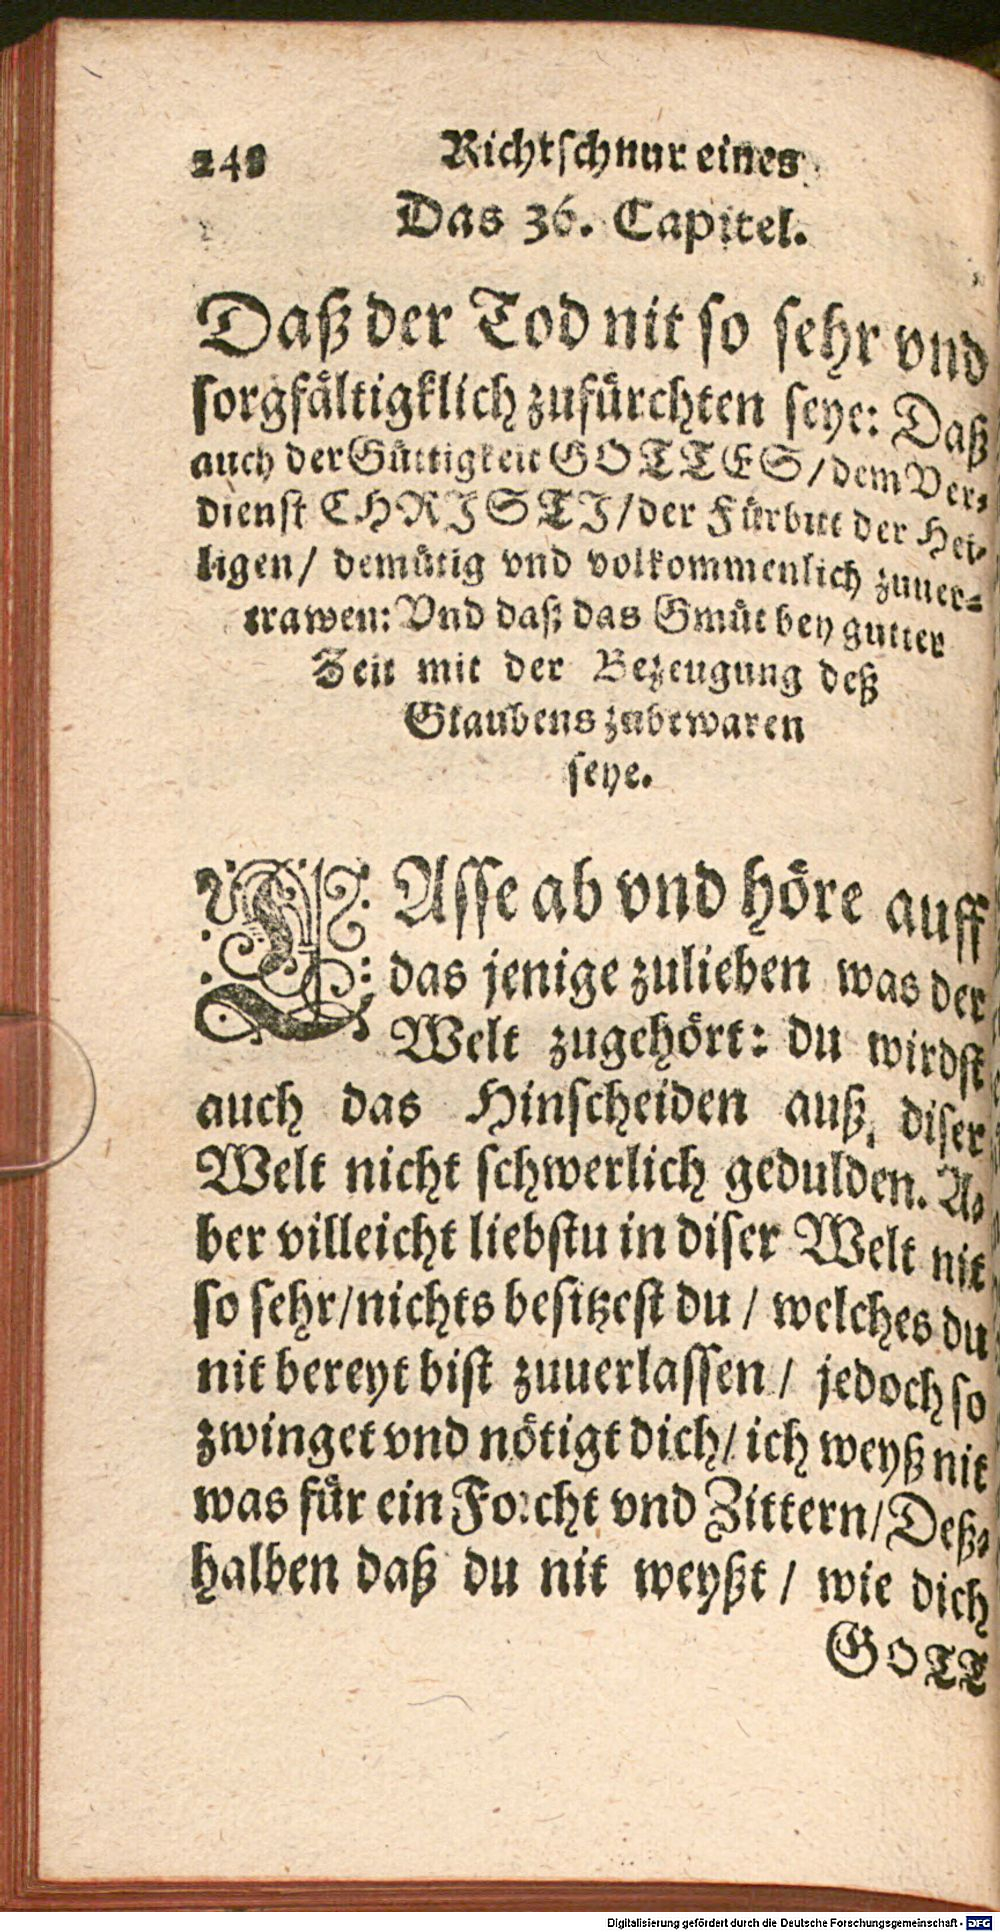 248 Richtschnur eines
Das 36. Capitel.
Daß der Tod nit so sehr vnd
sorgfältigklich zufürchten seye: Daß
auch der Güttigkeit GOTTES/ dem Ver-
dienst CHRISTI/ der Fürbitt der Hei-
ligen/ demütig vnd volkommenlich zuuer-
trawen: Vnd daß das Gmüt bey gutter
Zeit mit der Bezeugung deß
Glaubens zubewaren
seye.
LAsse ab vnd höre auff
das jenige zulieben was der
Welt zugehört: du wirdst
auch das Hinscheiden auß diser
Welt nicht schwerlich gedulden. A-
ber villeicht liebstu in diser Welt nit
so sehr/ nichts besitzest du / welches du
nit bereyt bist zuuerlassen / jedoch so
zwinget vnd nötigt dich/ ich weyß nit
was für ein Forcht vnd Zittern/ Deß-
halben daß du nit weyßt / wie dich
GOTT
Digitalisierung gefördert durch die Deutsche Forschungsgemeinschaft - DFG